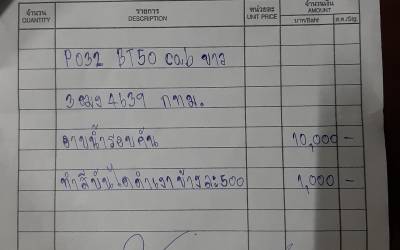 จำนวน รายการ หน่วยละ จำนวนเงิน
QUANTITY DESCRIPTION UNIT PRICE AMOUNT
บาท/Baht ส.ต./Stg.
P032 BT50 cab ขาว
3ฒฆ 4639 กทม.
อาบน้ำรอบคัน 10,000 -
ทำสีบันไดดำเงาข้างละ500 1,000 -